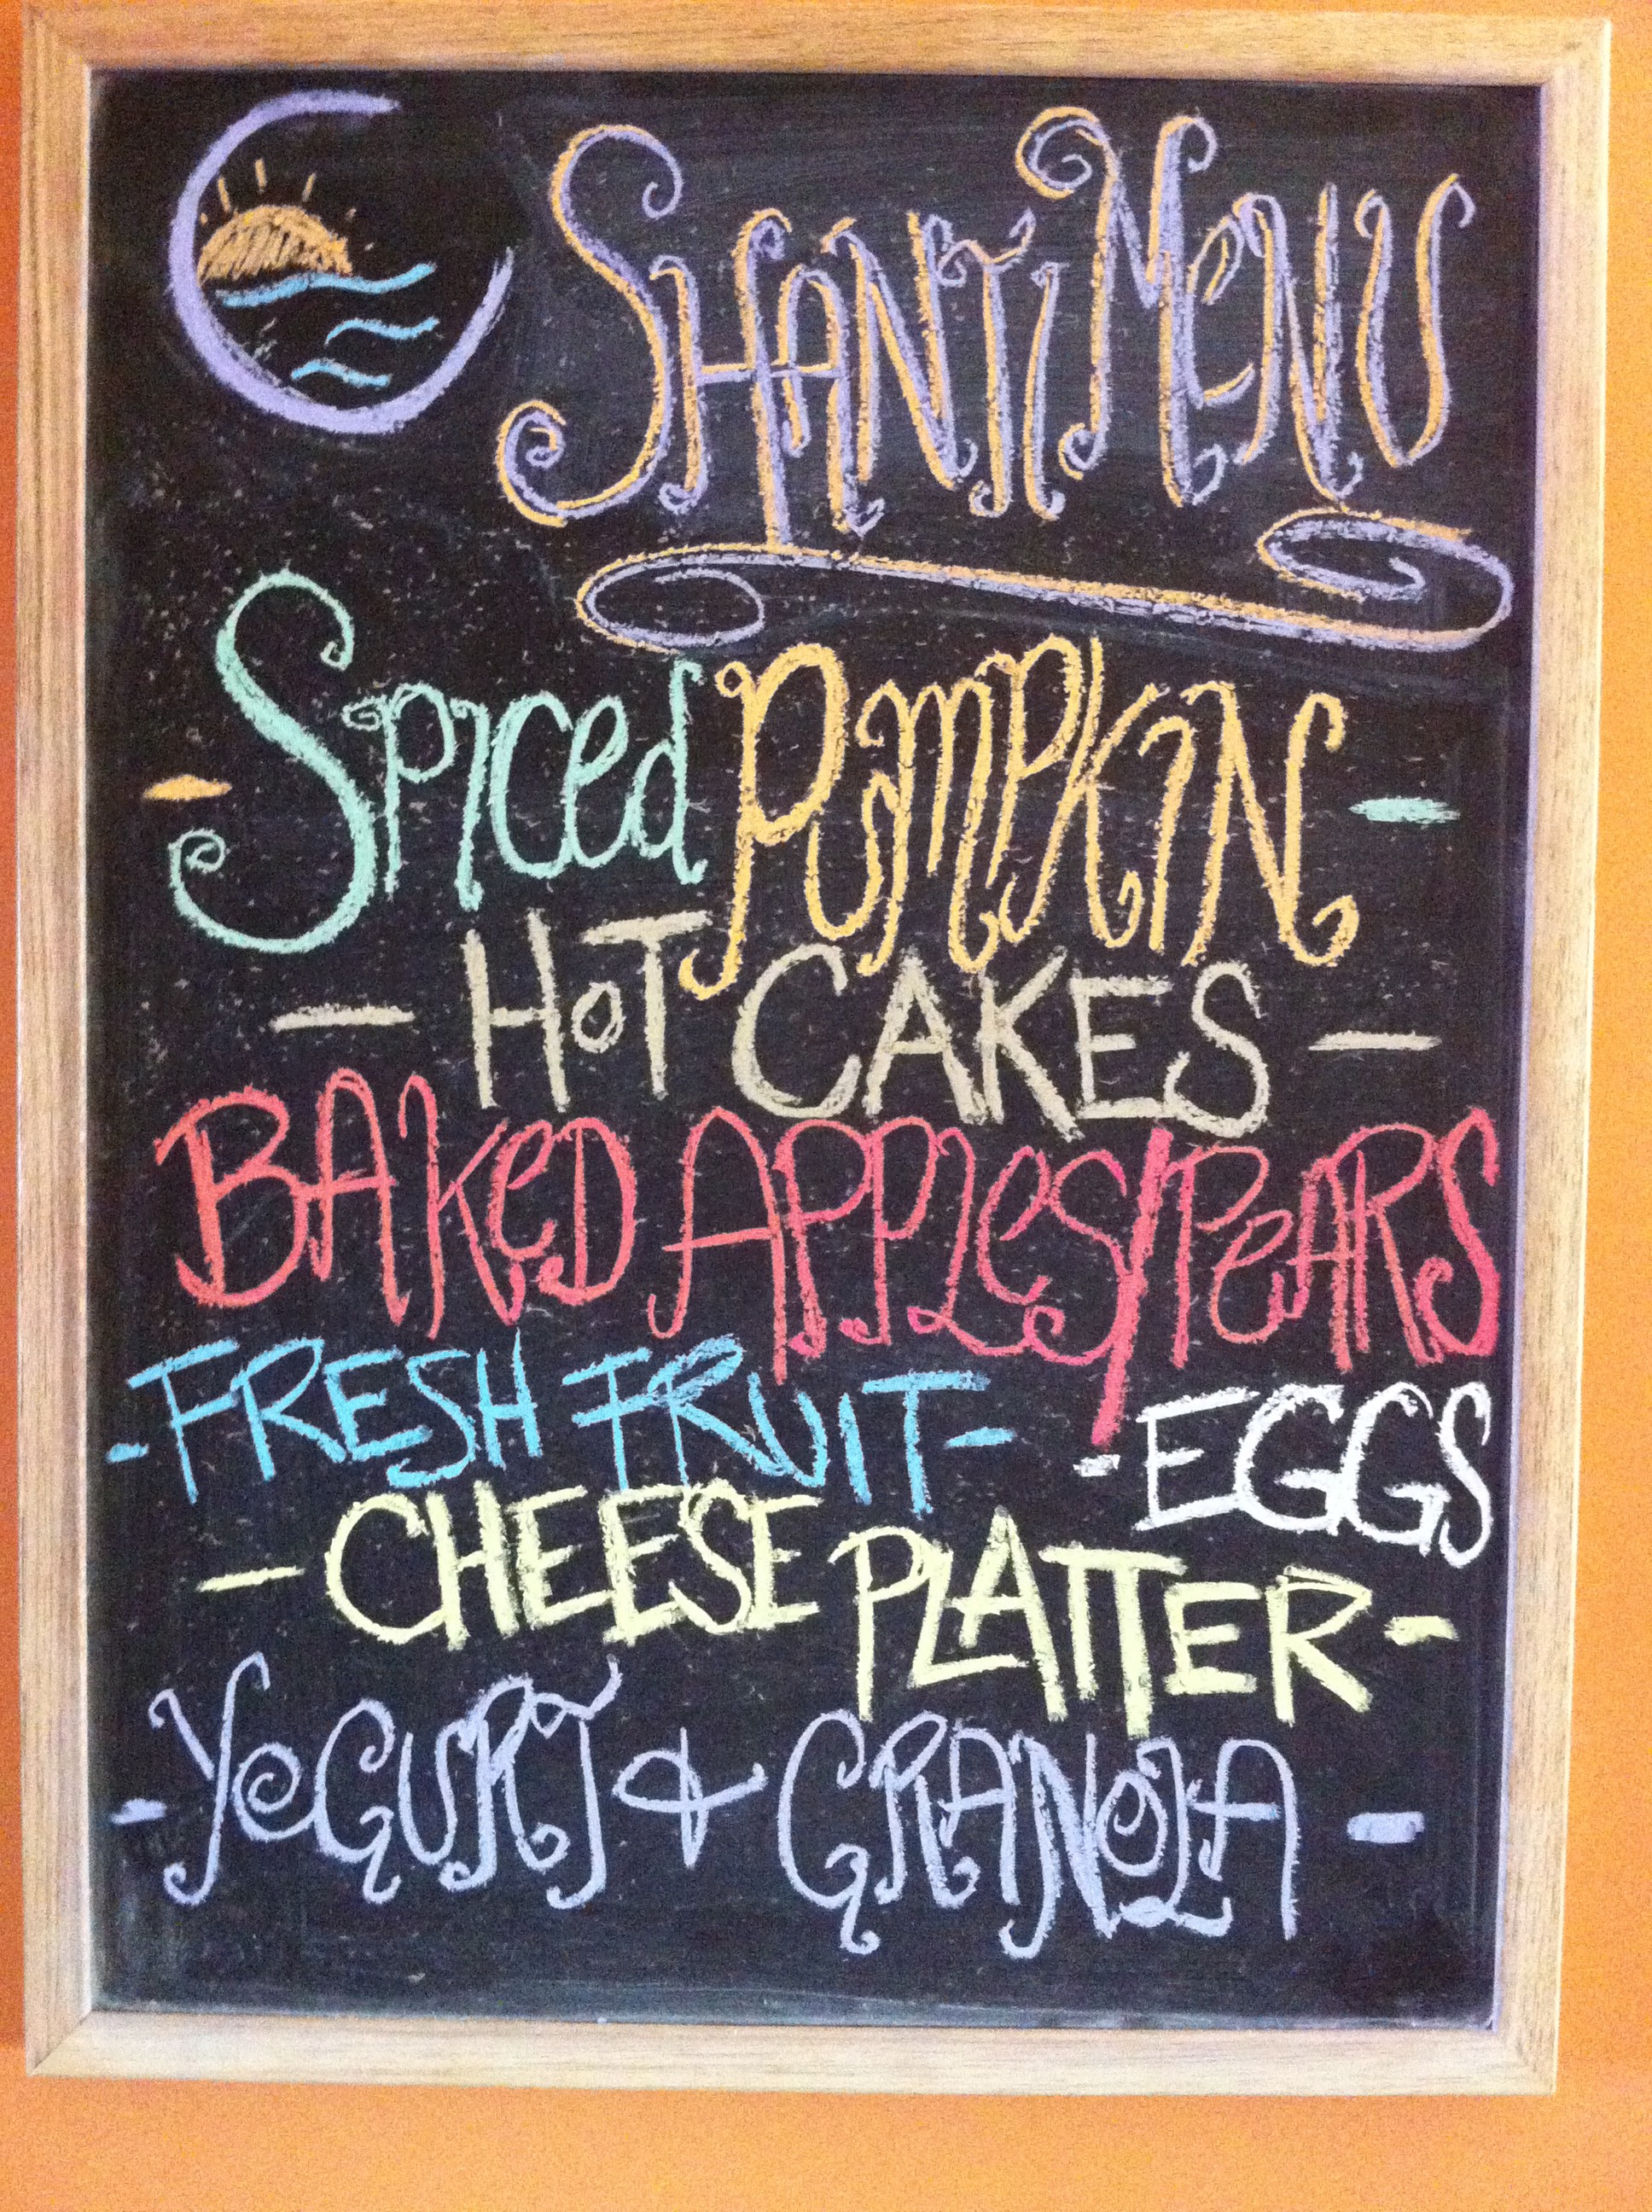 SHANTI MENU
- Spiced PUMPKIN -
- HOT CAKES -
BAKED APPLES/PEARS
- FRESH FRUIT - - EGGS
- CHEESE PLATTER -
- YOGURT & GRANOLA -